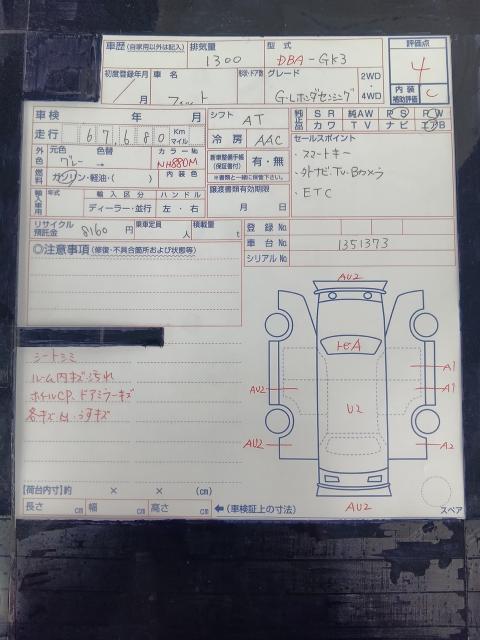 車歴 (自家用以外は記入) 排気量 型式 評価点
1300 DBA-GK3 4
初度登録年月 車名 形状・ドア数 グレード 2WD・4WD 内装補助評価 C
/ 月 フィット G-Lホンダセンシング
車検 年 月 シフト AT 純正品 SR 純AW PS PW
走行 67,680 Km マイル 冷房 AAC カワ TV ナビ エアB
外色 元色 色替 カラーNo 新車整備手帳(保証書付) 有・無 セールスポイント
グレー → NH880M ※書類と一緒に保管下さい。 ・スマートキー
燃料 ガソリン・軽油・( ) 内装色 譲渡書類有効期限 ・外ナビ、TV、Bカメラ
輸入車用 年式 輸入区分 ハンドル 月 日 ・ETC
ディーラー・並行 左・右
リサイクル預託金 8160 円 乗車定員 人 積載量 t 登録No
車台No 1351373
シリアルNo
◎注意事項 (修復・不具合箇所および状態等)
シートシミ
ルーム内キズ・汚れ
ホイルCP、ドアミラーキズ
各キズ凹・うすキズ
AU2
ヒビA
A1
AU2 A1
U2
AU2 A2
AU2
スペア
【荷台内寸】約 × × (cm)
長さ cm 幅 cm 高さ cm ← (車検証上の寸法)